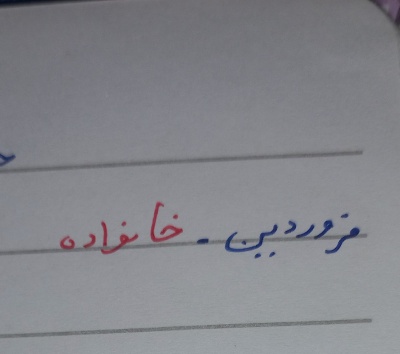 فروردین - خانواده